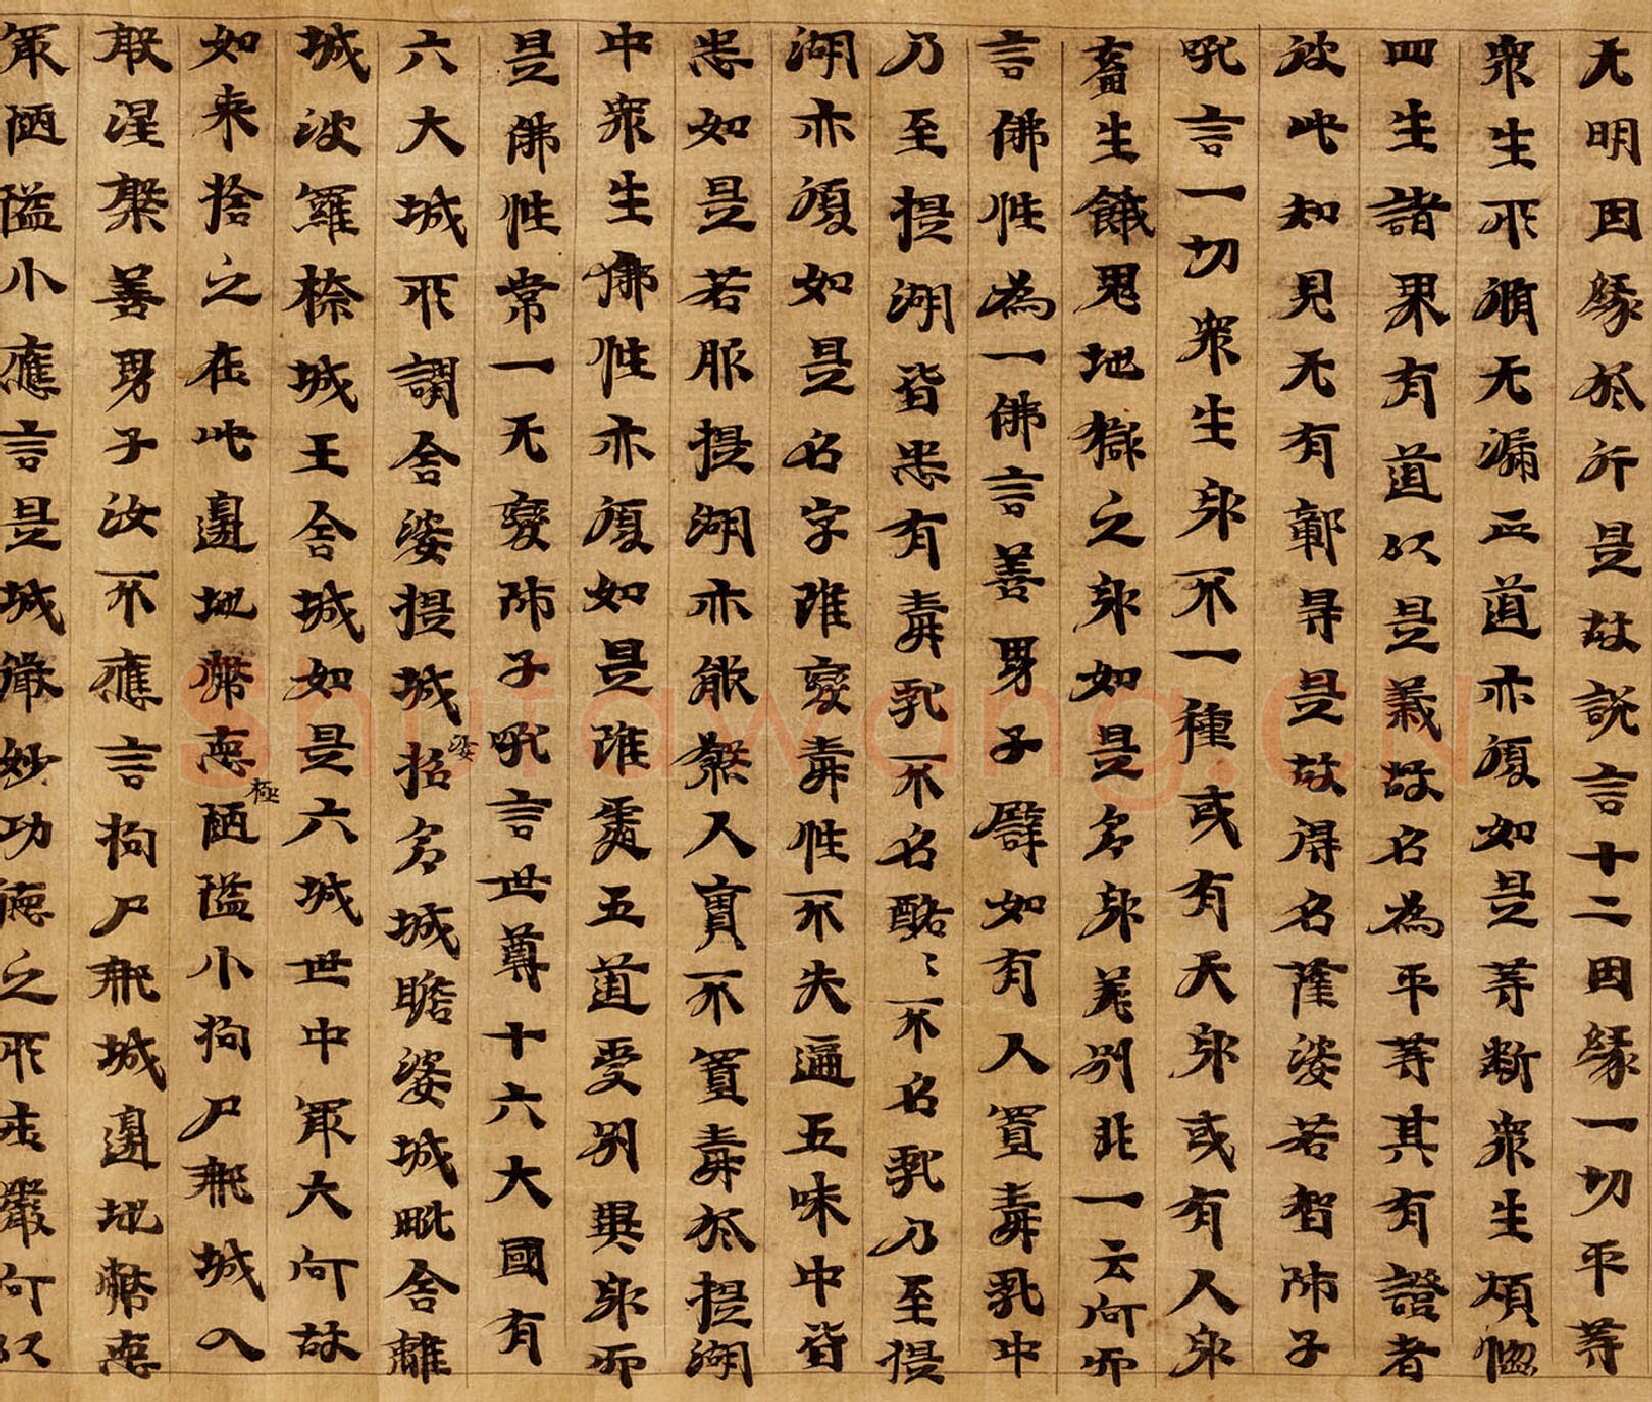 无明因緣於行是故說言十二因緣一切平等
衆生所脩无漏正道亦復如是等断衆生煩惱
四生諸界有道以是義故名為平等其有證者
彼此知見无有鄣㝵是故得名薩婆若智師子
吼言一切衆生身不一種或有天身或有人身
畜生餓鬼地獄之身如是多身差別非一云何而
言佛性為一佛言善男子譬如有人置毒乳中
乃至提湖皆悉有毒乳不名酪〻不名乳乃至提
湖亦復如是名字雖變毒性不失遍五味中皆
悉如是若服提湖亦能煞人實不置毒於提湖
中衆生佛性亦復如是雖處五道受別異身而
是佛性常一无變師子吼言世尊十六大國有
六大城所謂舍婆提城婆枳多城瞻婆城毗舍離
城波羅㮈城王舍城如是六城世中冣大何故
如来捨之在此邊地弊惡極陋隘小拘尸那城入
般涅槃善男子汝不應言拘尸那城邊地弊惡
冣陋隘小應言是城微妙功德之所庄嚴何以
shufawang.CN